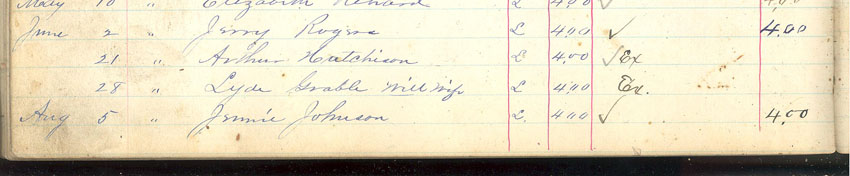 May 10 " Elizabeth L 4.00 ✓ 4.00
June 2 " Jerry Rogers L 4.00 ✓ 4.00
21 " Arthur Hutchison L 4.00 ✓ Ex
28 " Lyde Grable Will Wife L 4.00 Ex.
Aug 5 " Jennie Johnson L. 4.00 ✓ 4.00